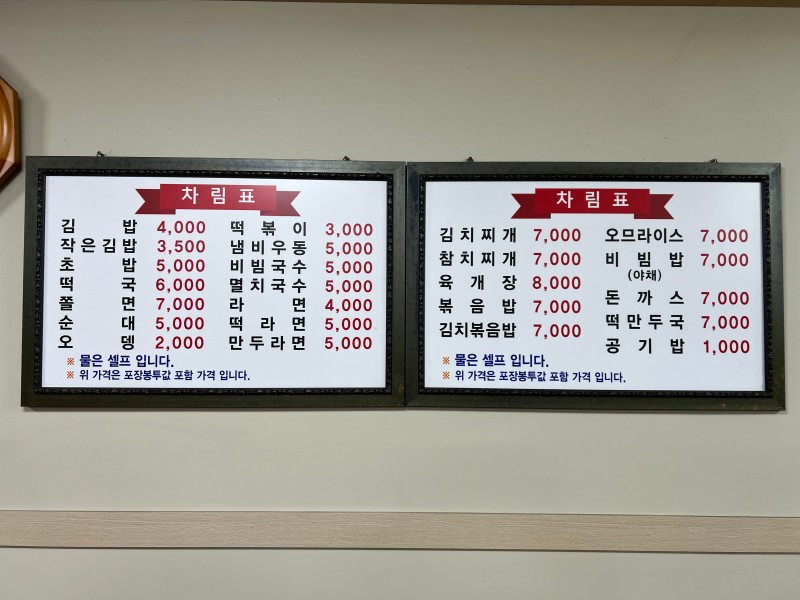 차림표
김밥 4,000
작은김밥 3,500
초밥 5,000
떡국 6,000
쫄면 7,000
순대 5,000
오뎅 2,000
떡볶이 3,000
냄비우동 5,000
비빔국수 5,000
멸치국수 5,000
라면 4,000
떡라면 5,000
만두라면 5,000
※ 물은 셀프 입니다.
※ 위 가격은 포장봉투값 포함 가격 입니다.
차림표
김치찌개 7,000
참치찌개 7,000
육개장 8,000
볶음밥 7,000
김치볶음밥 7,000
오므라이스 7,000
비빔밥 7,000
(야채)
돈까스 7,000
떡만두국 7,000
공기밥 1,000
※ 물은 셀프 입니다.
※ 위 가격은 포장봉투값 포함 가격 입니다.